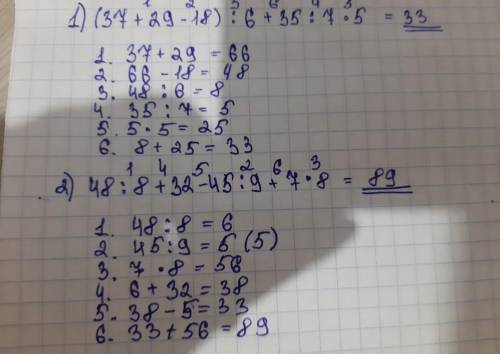 1 2 3 6 4 5
1) (37 + 29 - 18) : 6 + 35 : 7 · 5 = 33
1. 37 + 29 = 66
2. 66 - 18 = 48
3. 48 : 6 = 8
4. 35 : 7 = 5
5. 5 · 5 = 25
6. 8 + 25 = 33
1 4 5 2 6 3
2) 48 : 8 + 32 - 45 : 9 + 7 · 8 = 89
1. 48 : 8 = 6
2. 45 : 9 = 5 (5)
3. 7 · 8 = 56
4. 6 + 32 = 38
5. 38 - 5 = 33
6. 33 + 56 = 89